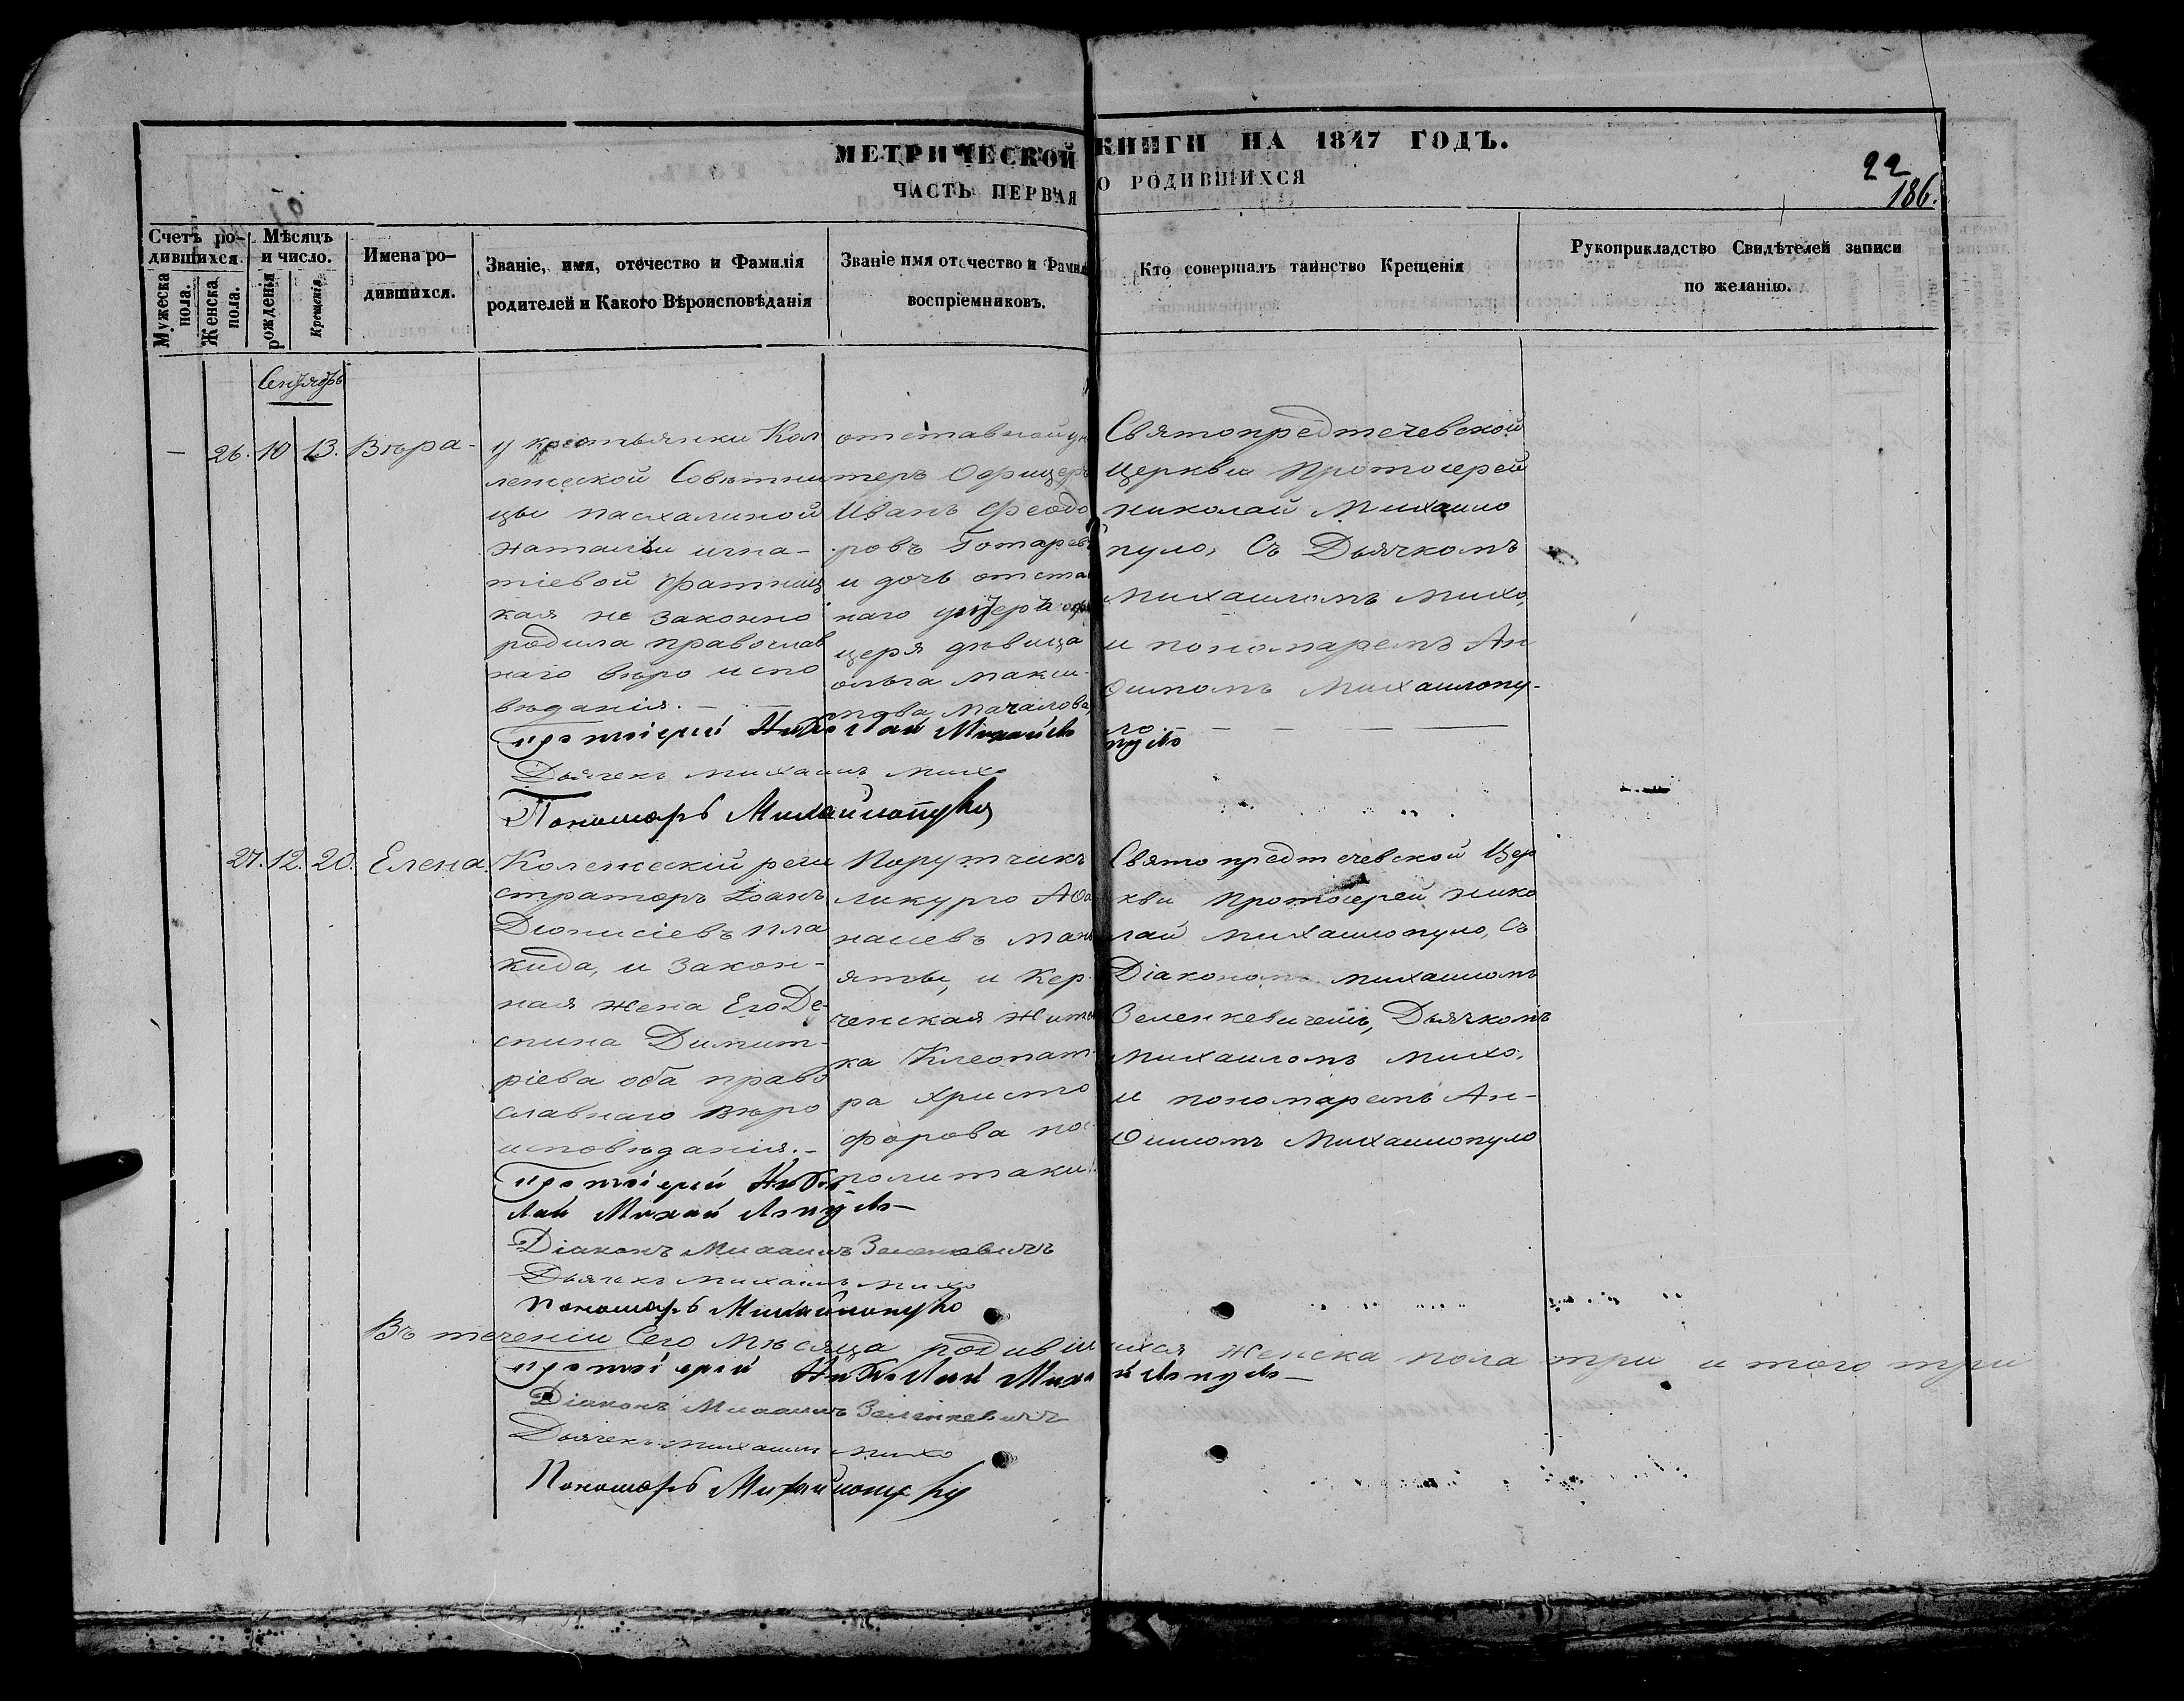 МЕТРИЧЕСКОЙ КНИГИ НА 1847 ГОДЪ.
ЧАСТЬ ПЕРВАЯ О РОДИВШИХСЯ
22
186.
Счетъ ро-
дившихся.
Мужеска пола.
Женска пола.
Мѣсяцъ
и число.
рожденія
Крещенія.
Имена ро-
дившихся.
Званіе, имя, отечество и Фамилія
родителей и Какого Вѣроисповѣданія
Званіе имя отечество и Фамил
воспріемниковъ.
Кто совершалъ таинство Крещенія
Рукоприкладство Свидѣтелей записи
по желанію.
Сентябрь
— 26. 10 13. Вѣра-
у крестьянки Кол
лежской Совѣтни
цы пасхалиной
Наталіи игна-
тіевой
кая не законно
родила православ
наго вѣро испо
вѣданія. —
отставной ун
теръ Офицеръ
Иванъ Феодо
ровъ
и дочь отстав
наго унтеръ офи
церя дѣвица
ольга макси-
мова
Святопредтечевской
Церкви Протоіерей
николай Михаило
пуло, Съ Дьячкомъ
михаиломъ михо,
и пономаремъ Ан
ѳимомъ Михаилопу-
ло. —
протоіерей Николай Михайлопуло
Дьячекъ михаилъ михо
Пономарь Михайлопуло
27. 12. 20. Елена.
Колежскій реги
страторъ Іоанъ
Діонисіевъ пла
кида, и закон-
ная жена Его Де-
спина Димит-
ріева оба право
славнаго вѣро
исповѣданія. -
Порутчикъ
ликурго Аѳа
насіевъ
и Кер-
ченская жител
ка Клеопат-
ра христо
форова
политаки
Свято предтечевской Цер
кви протоіерей нико
лай михаилопуло, Съ
Діакономъ михаиломъ
Зеленкевичемъ, Дьячкомъ
михаиломъ михо,
и пономаремъ Ан-
ѳимомъ Михаилопуло
протоіерей Нико
лай Михайлопуло
Діаконъ Михаилъ Зеленкевичъ
Дьячекъ михаилъ михо
Пономарь Михайлопуло
Въ теченіи Сего мѣсяца родившихся женска пола три и того три
протоіерей Николай Михайлопуло
Діаконъ Михаилъ Зеленкевичъ
Дьячекъ михаилъ михо
Пономарь Михайлопуло